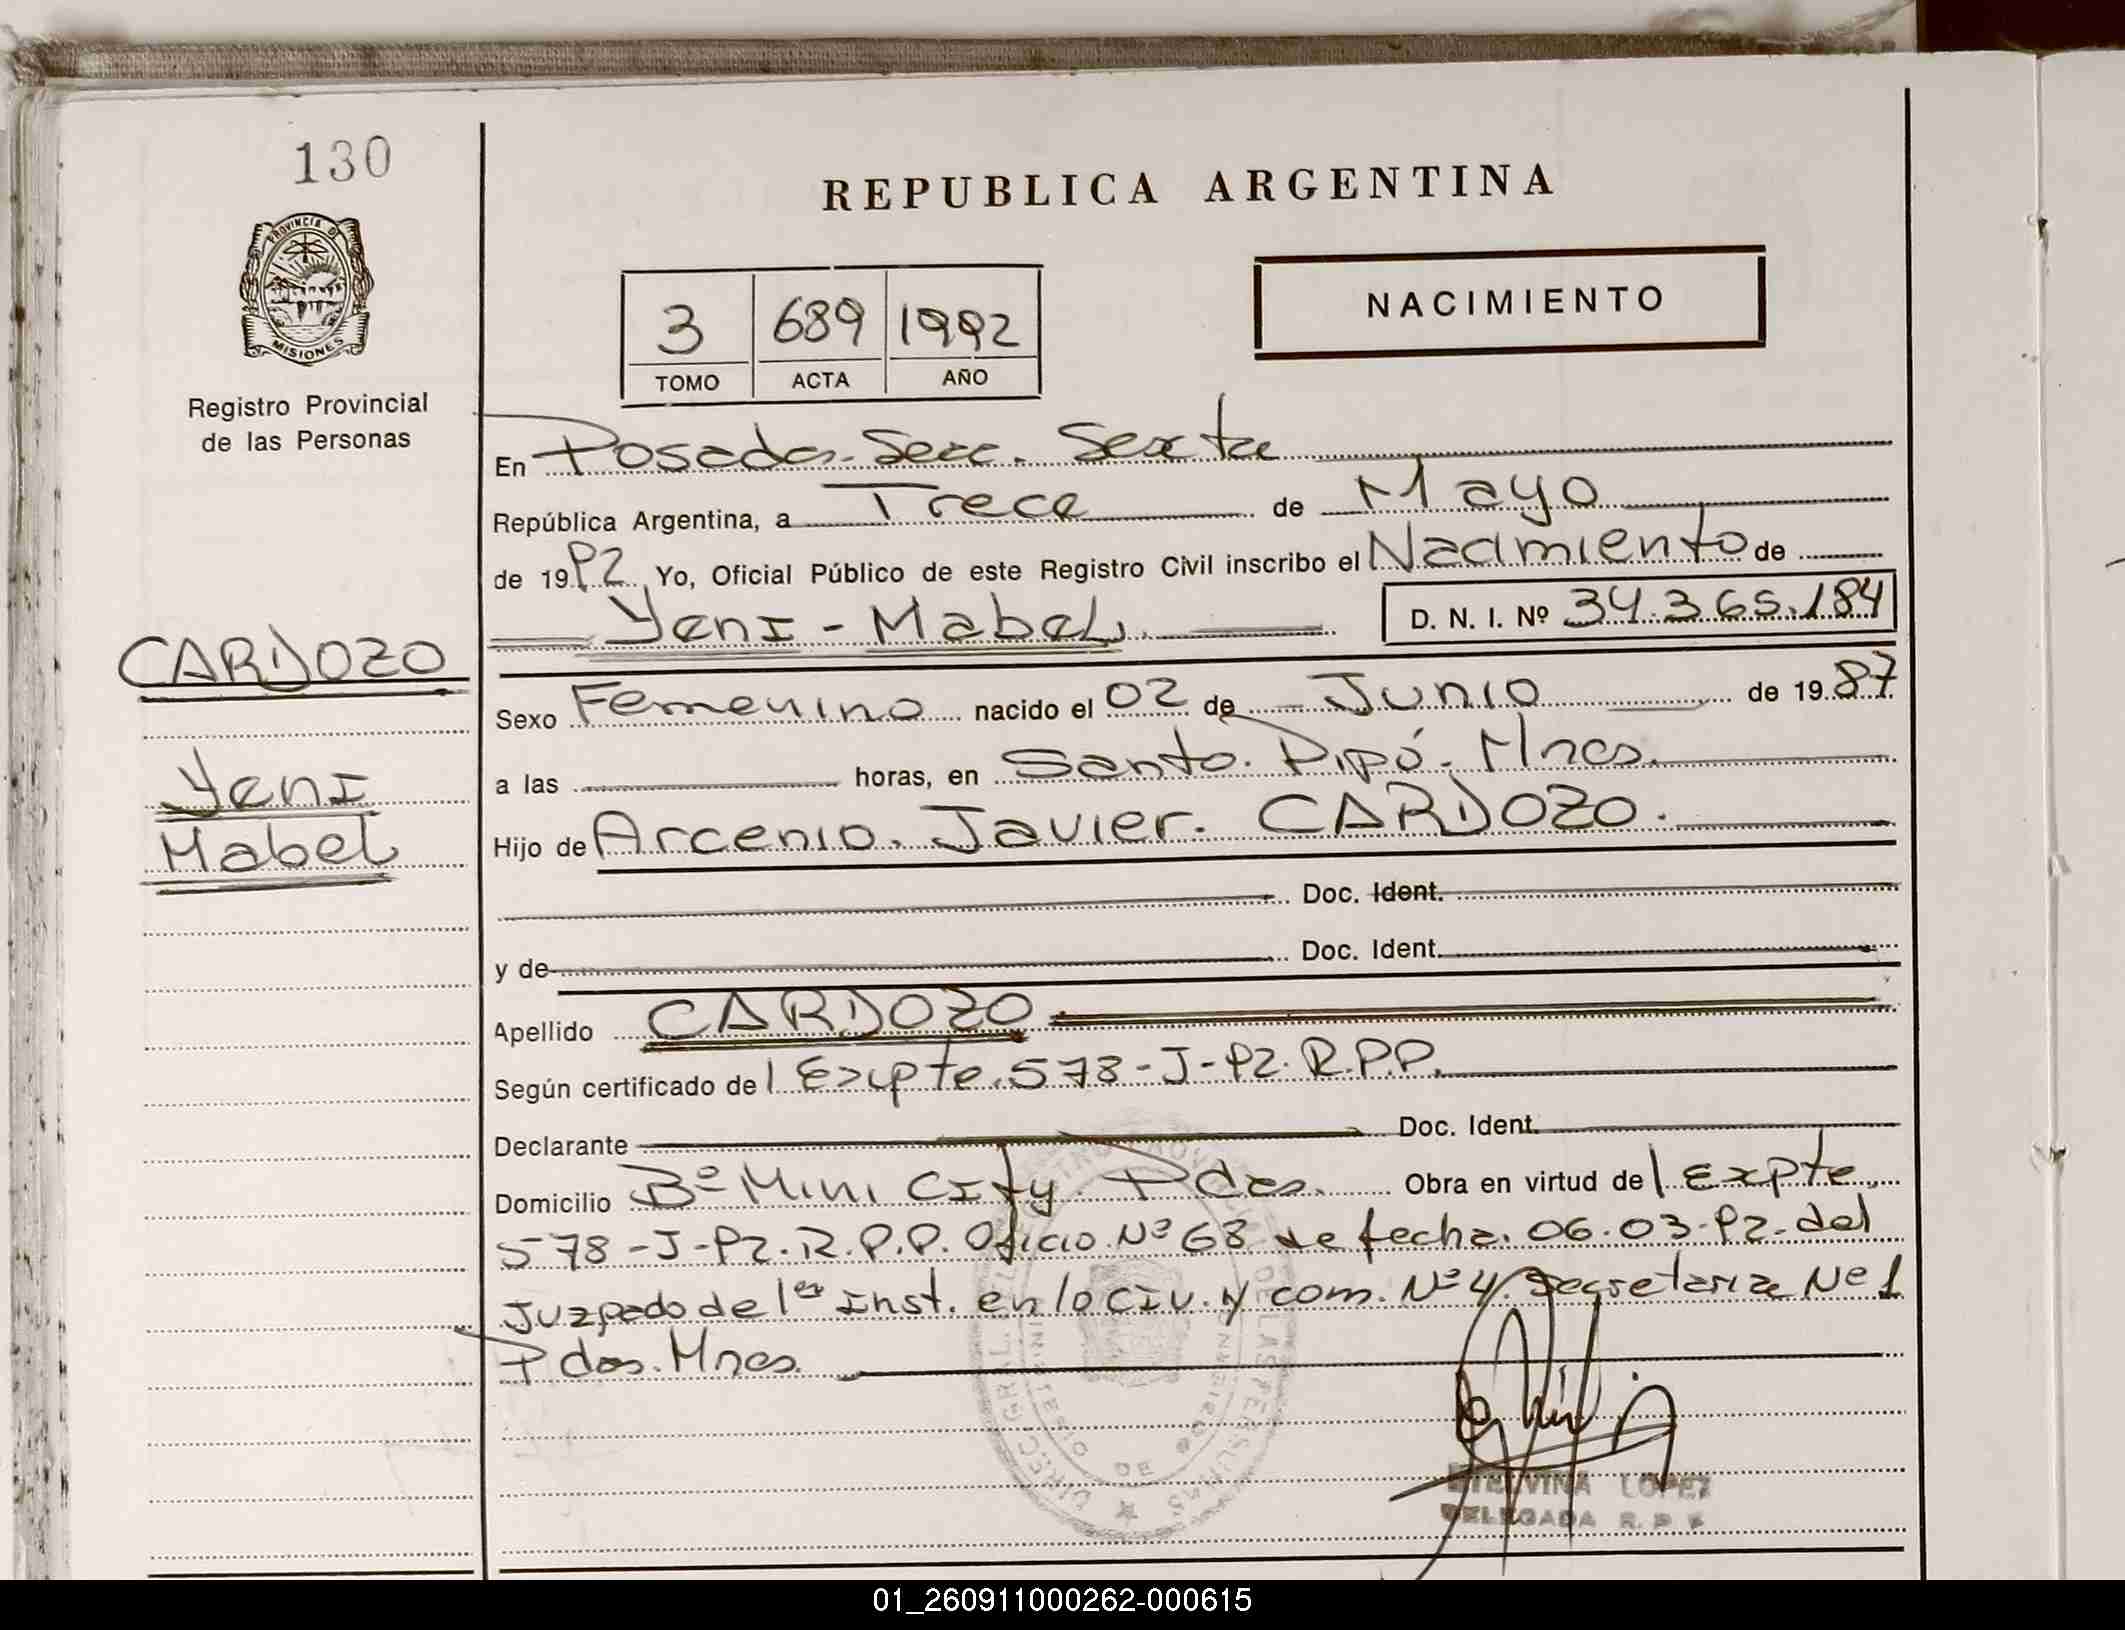 130
REPUBLICA ARGENTINA
PROVINCIA DE
MISIONES
NACIMIENTO
3 689 1992
TOMO ACTA AÑO
Registro Provincial
de las Personas
En Posadas. Secc. Sexta
República Argentina, a Trece de Mayo
de 1992 Yo, Oficial Público de este Registro Civil inscribo el Nacimiento de
Yeni - Mabel. D. N. I. Nº 34.365.184
CARDOZO
Yeni
Mabel
Sexo Femenino nacido el 02 de Junio de 1987
a las horas, en Santo. Pipó. Mnes.
Hijo de Arcenio. Javier. CARDOZO.
Doc. Ident.
y de Doc. Ident.
Apellido CARDOZO
Según certificado del Expte. 578-J-92. R.P.P.
Declarante Doc. Ident.
Domicilio Bº Mini City. Pdas. Obra en virtud del Expte
578-J-92. R.P.P. Oficio Nº 68 de fecha. 06.03.92. del
Juzgado de 1er Inst. en lo civ. y com. Nº 4. Secretaria Nº 1
Pdas. Mnes.
ETELVINA LOPEZ
DELEGADA R. P. P.
01_260911000262-000615